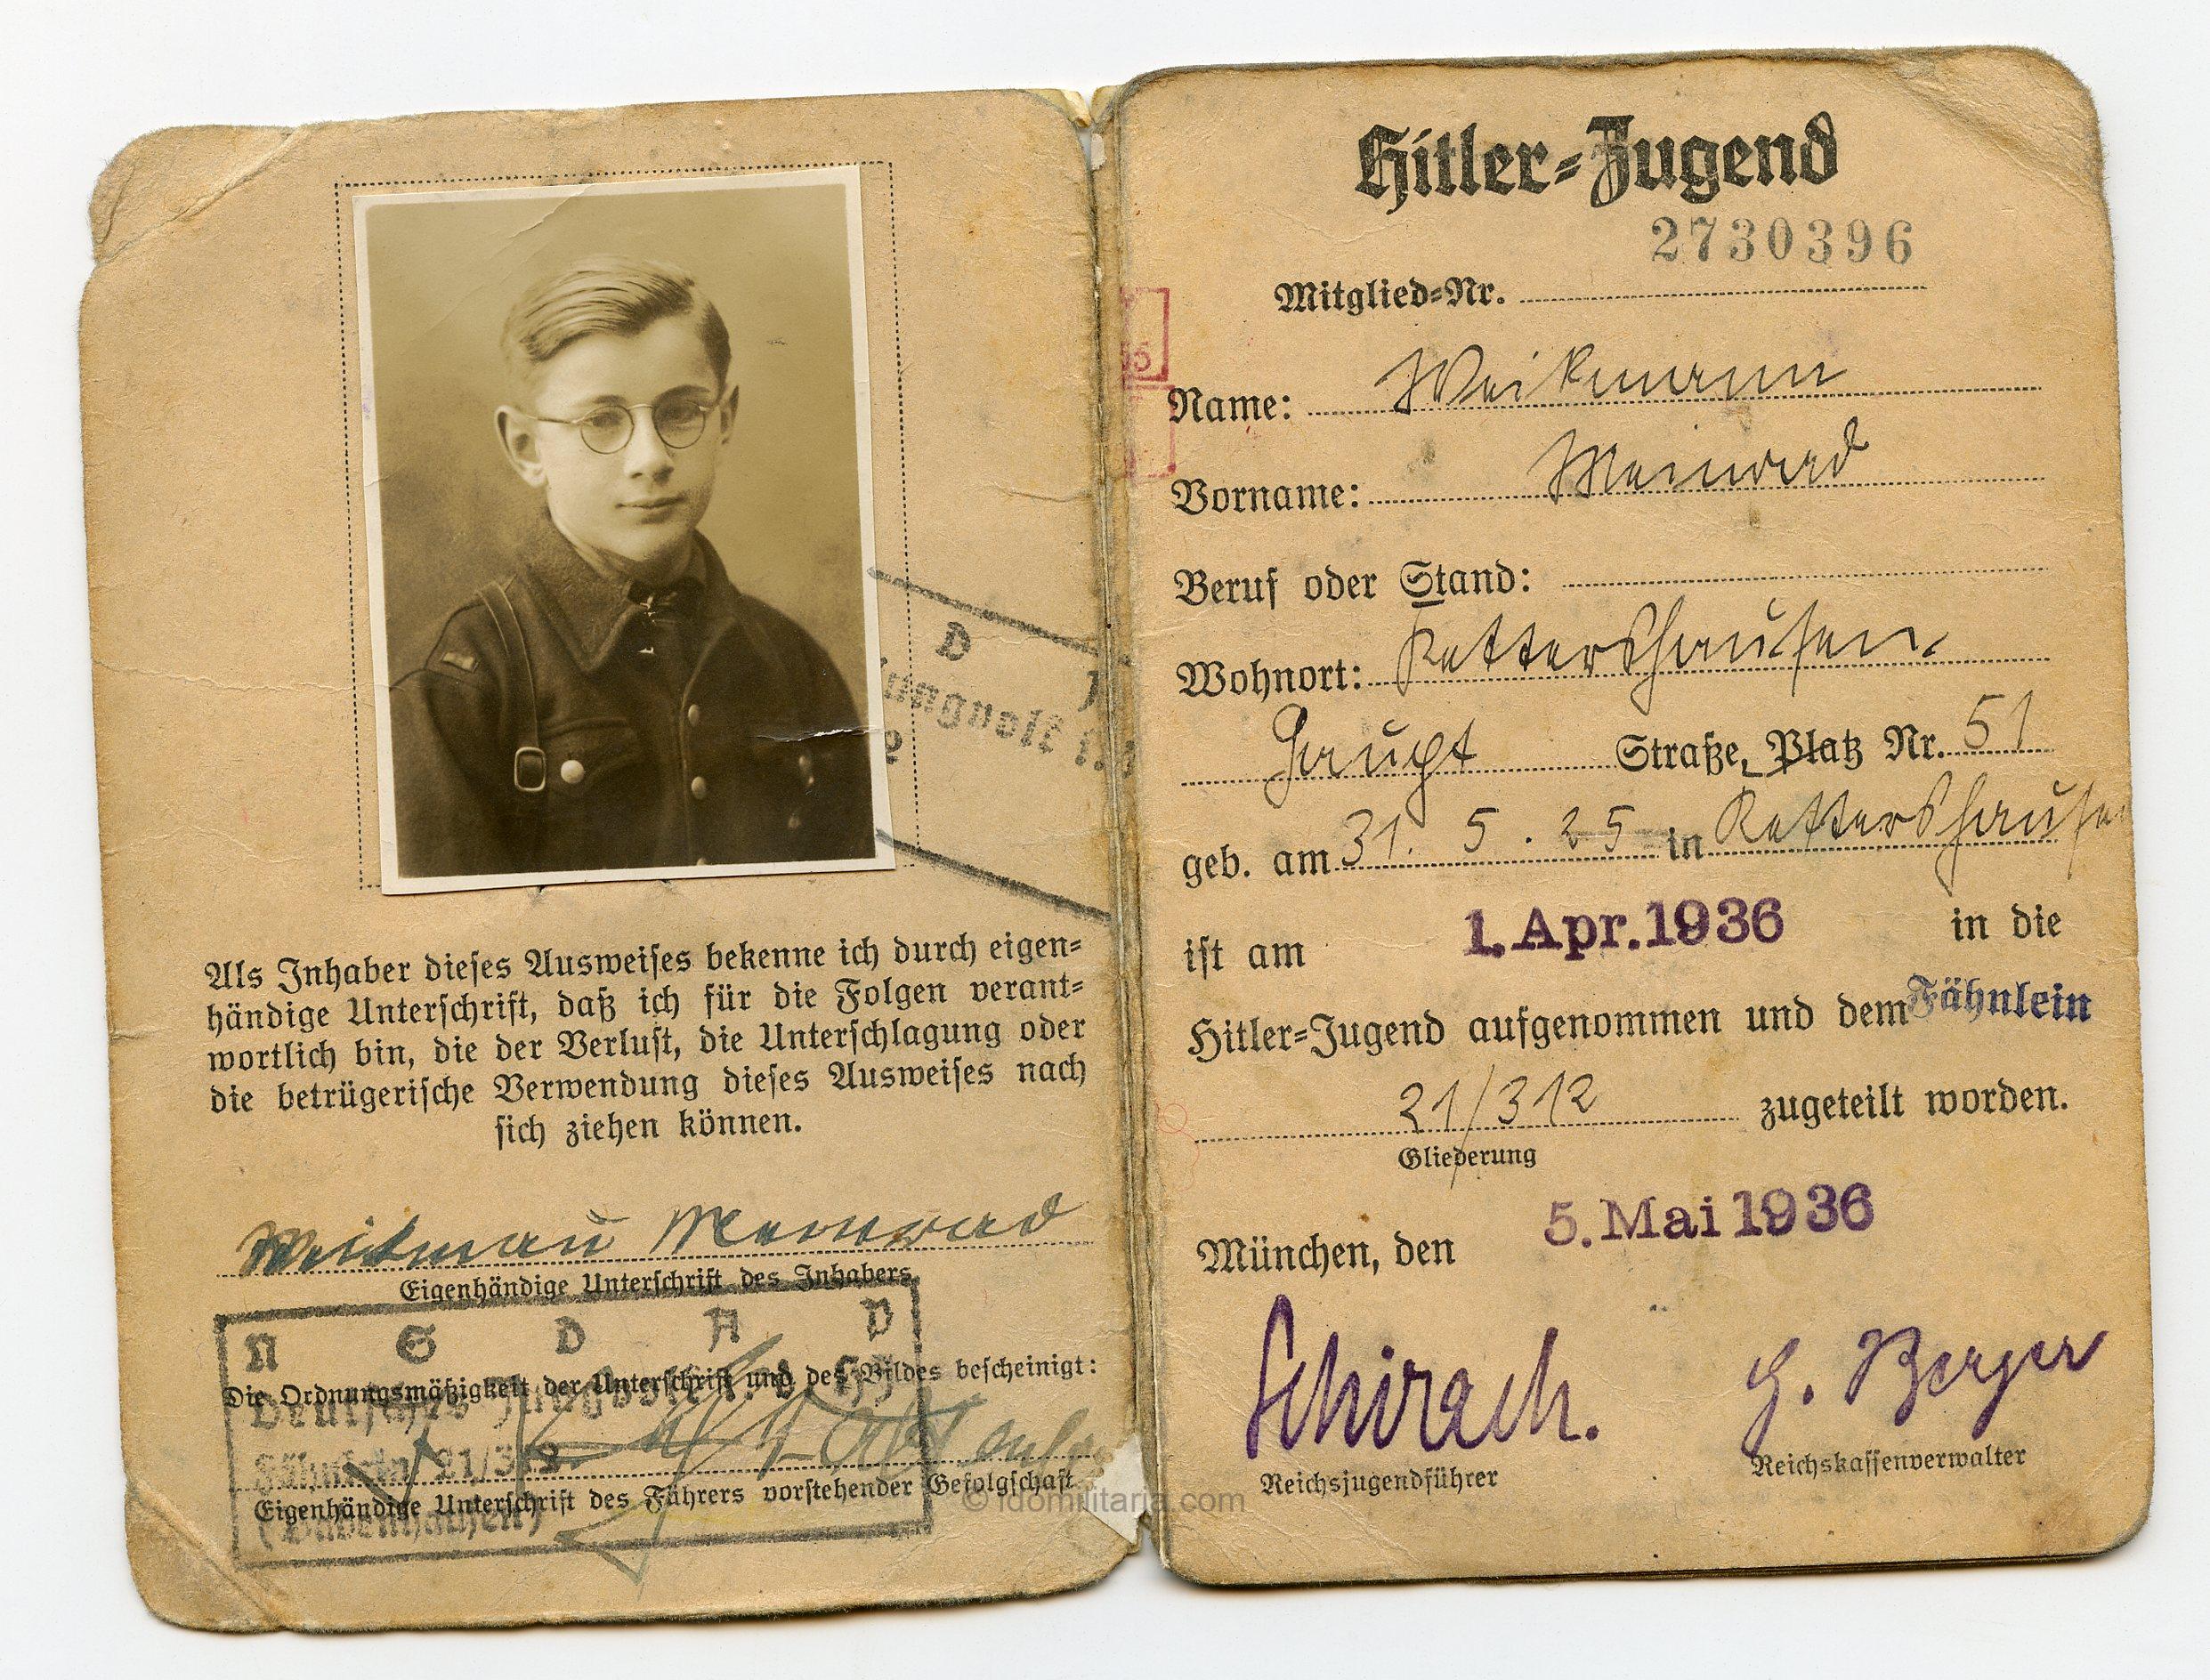 D J
Jungvolk i.d
Als Inhaber dieses Ausweises bekenne ich durch eigen-
händige Unterschrift, daß ich für die Folgen verant-
wortlich bin, die der Verlust, die Unterschlagung oder
die betrügerische Verwendung dieses Ausweises nach
sich ziehen können.
Weikmann Meinrad
Eigenhändige Unterschrift des Inhabers
N S D A P
Die Ordnungsmäßigkeit der Unterschrift und des Bildes bescheinigt:
Deutsches Jungvolk i. d. HJ
Fähnlein 21/312
Eigenhändige Unterschrift des Führers vorstehender Gefolgschaft
(Babenhausen)
Hitler-Jugend
2730396
Mitglied-Nr.
Name: Weikmann
Vorname: Meinrad
Beruf oder Stand:
Wohnort: Kettershausen
Haupt Straße, Platz Nr. 51
geb. am 31. 5. 25 in Kettershausen
ist am 1. Apr. 1936 in die
Hitler-Jugend aufgenommen und dem Fähnlein
21/312 zugeteilt worden.
Gliederung
München, den 5. Mai 1936
Schirach. G. Berger
Reichsjugendführer Reichskassenverwalter
© idomilitaria.com